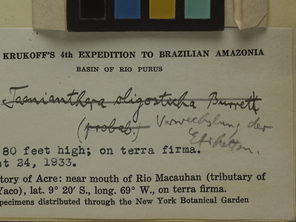 KRUKOFF'S 4th EXPEDITION TO BRAZILIAN AMAZONIA
BASIN OF RIO PURUS
Taenianthera oligosticha Burret
(probab.) Verwechslung der
Etiketten.
80 feet high; on terra firma.
st 24, 1933.
tory of Acre: near mouth of Rio Macauhan (tributary of
Yaco), lat. 9° 20' S., long. 69° W., on terra firma.
specimens distributed through the New York Botanical Garden